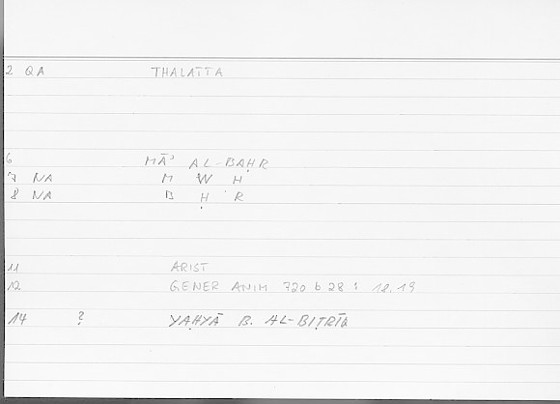 2 QA THALATTA
6 MĀʾ AL-BAḤR
7 NA M W H
8 NA B Ḥ R
11 ARIST
12 GENER ANIM 720 b 28 : 18.19
14 ? YAḤYĀ B. AL-BIṬRĪQ